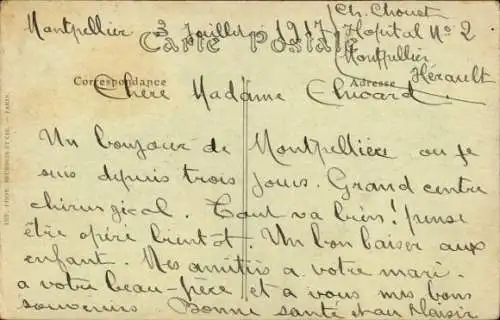 Montpellier 3 Juillet 1917
Ch. Chouet
Hopital No 2
Montpellier
Hérault
Carte Postale
Correspondance
Adresse
Chère Madame
Un bonjour de Montpellier ou je
suis depuis trois jours. Grand centre
chirurgical. Tout va bien! pense
être opéré bientôt. Un bon baiser aux
enfant. Mes amitiés a votre mari.
a votre beau-père et a vous mes bons
souvenirs Bonne santé